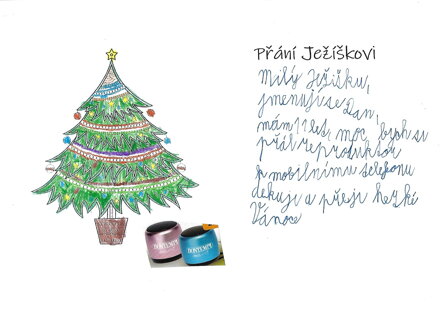 Přání Ježíškovi
Milý Ježíšku,
jmenuji se Dan,
mám 11 let, moc bych si
přál reproduktor
k mobilnímu telefonu
dekuji a přeji hezké
Vánoce
BONTEMPI
BONTEMPI